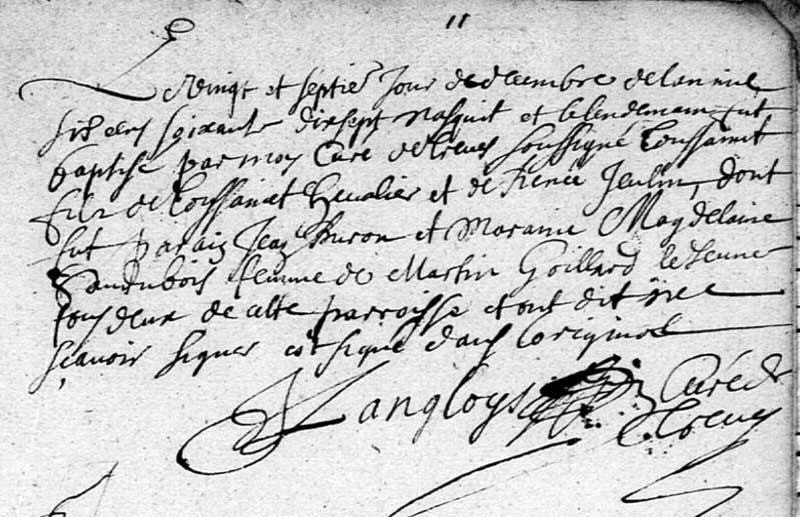 11
Le vingt et septie jour de decembre de lan mil
six cens soixante dixsept nasquit et le lendemain fut
baptise par moy Curé de Creués soussigné Toussainct
fils de Toussainct Chevalier et de Renée Jeulin, dont
fut parain Jean Buron et Maraine Magdelaine
femme de Martin Goillard le Jeune
tous deux de cette parroisse et ont dit ne
sçauoir signer et signé dans loriginal
Langloys Curé de
Creués